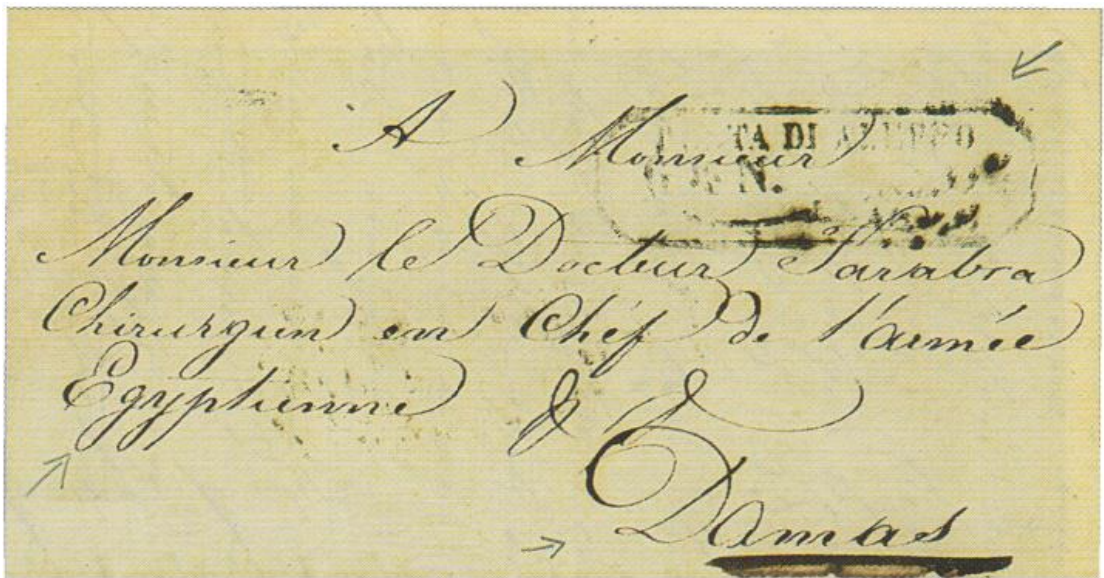 A Monsieur
POSTA DI ALEPPO
N.
Monsieur le Docteur
Chirurgien en Chéf de l'armée
Egyptienne
Damas